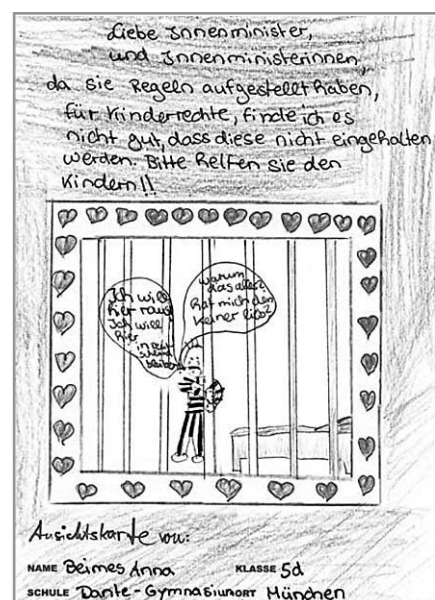 Liebe Innenminister,
und Innenministerinnen,
da sie Regeln aufgestellt haben,
für Kinderrechte, finde ich es
nicht gut, dass diese nicht eingehalten
werden. Bitte helfen sie den
Kindern!!
Ich will
hier raus
Ich will
hier
bleiben
warum
das alles?
Hat mich den
keiner lieb?
Ansichtskarte von:
NAME Beimes Anna KLASSE 5d
SCHULE Dante-Gymnasium ORT München